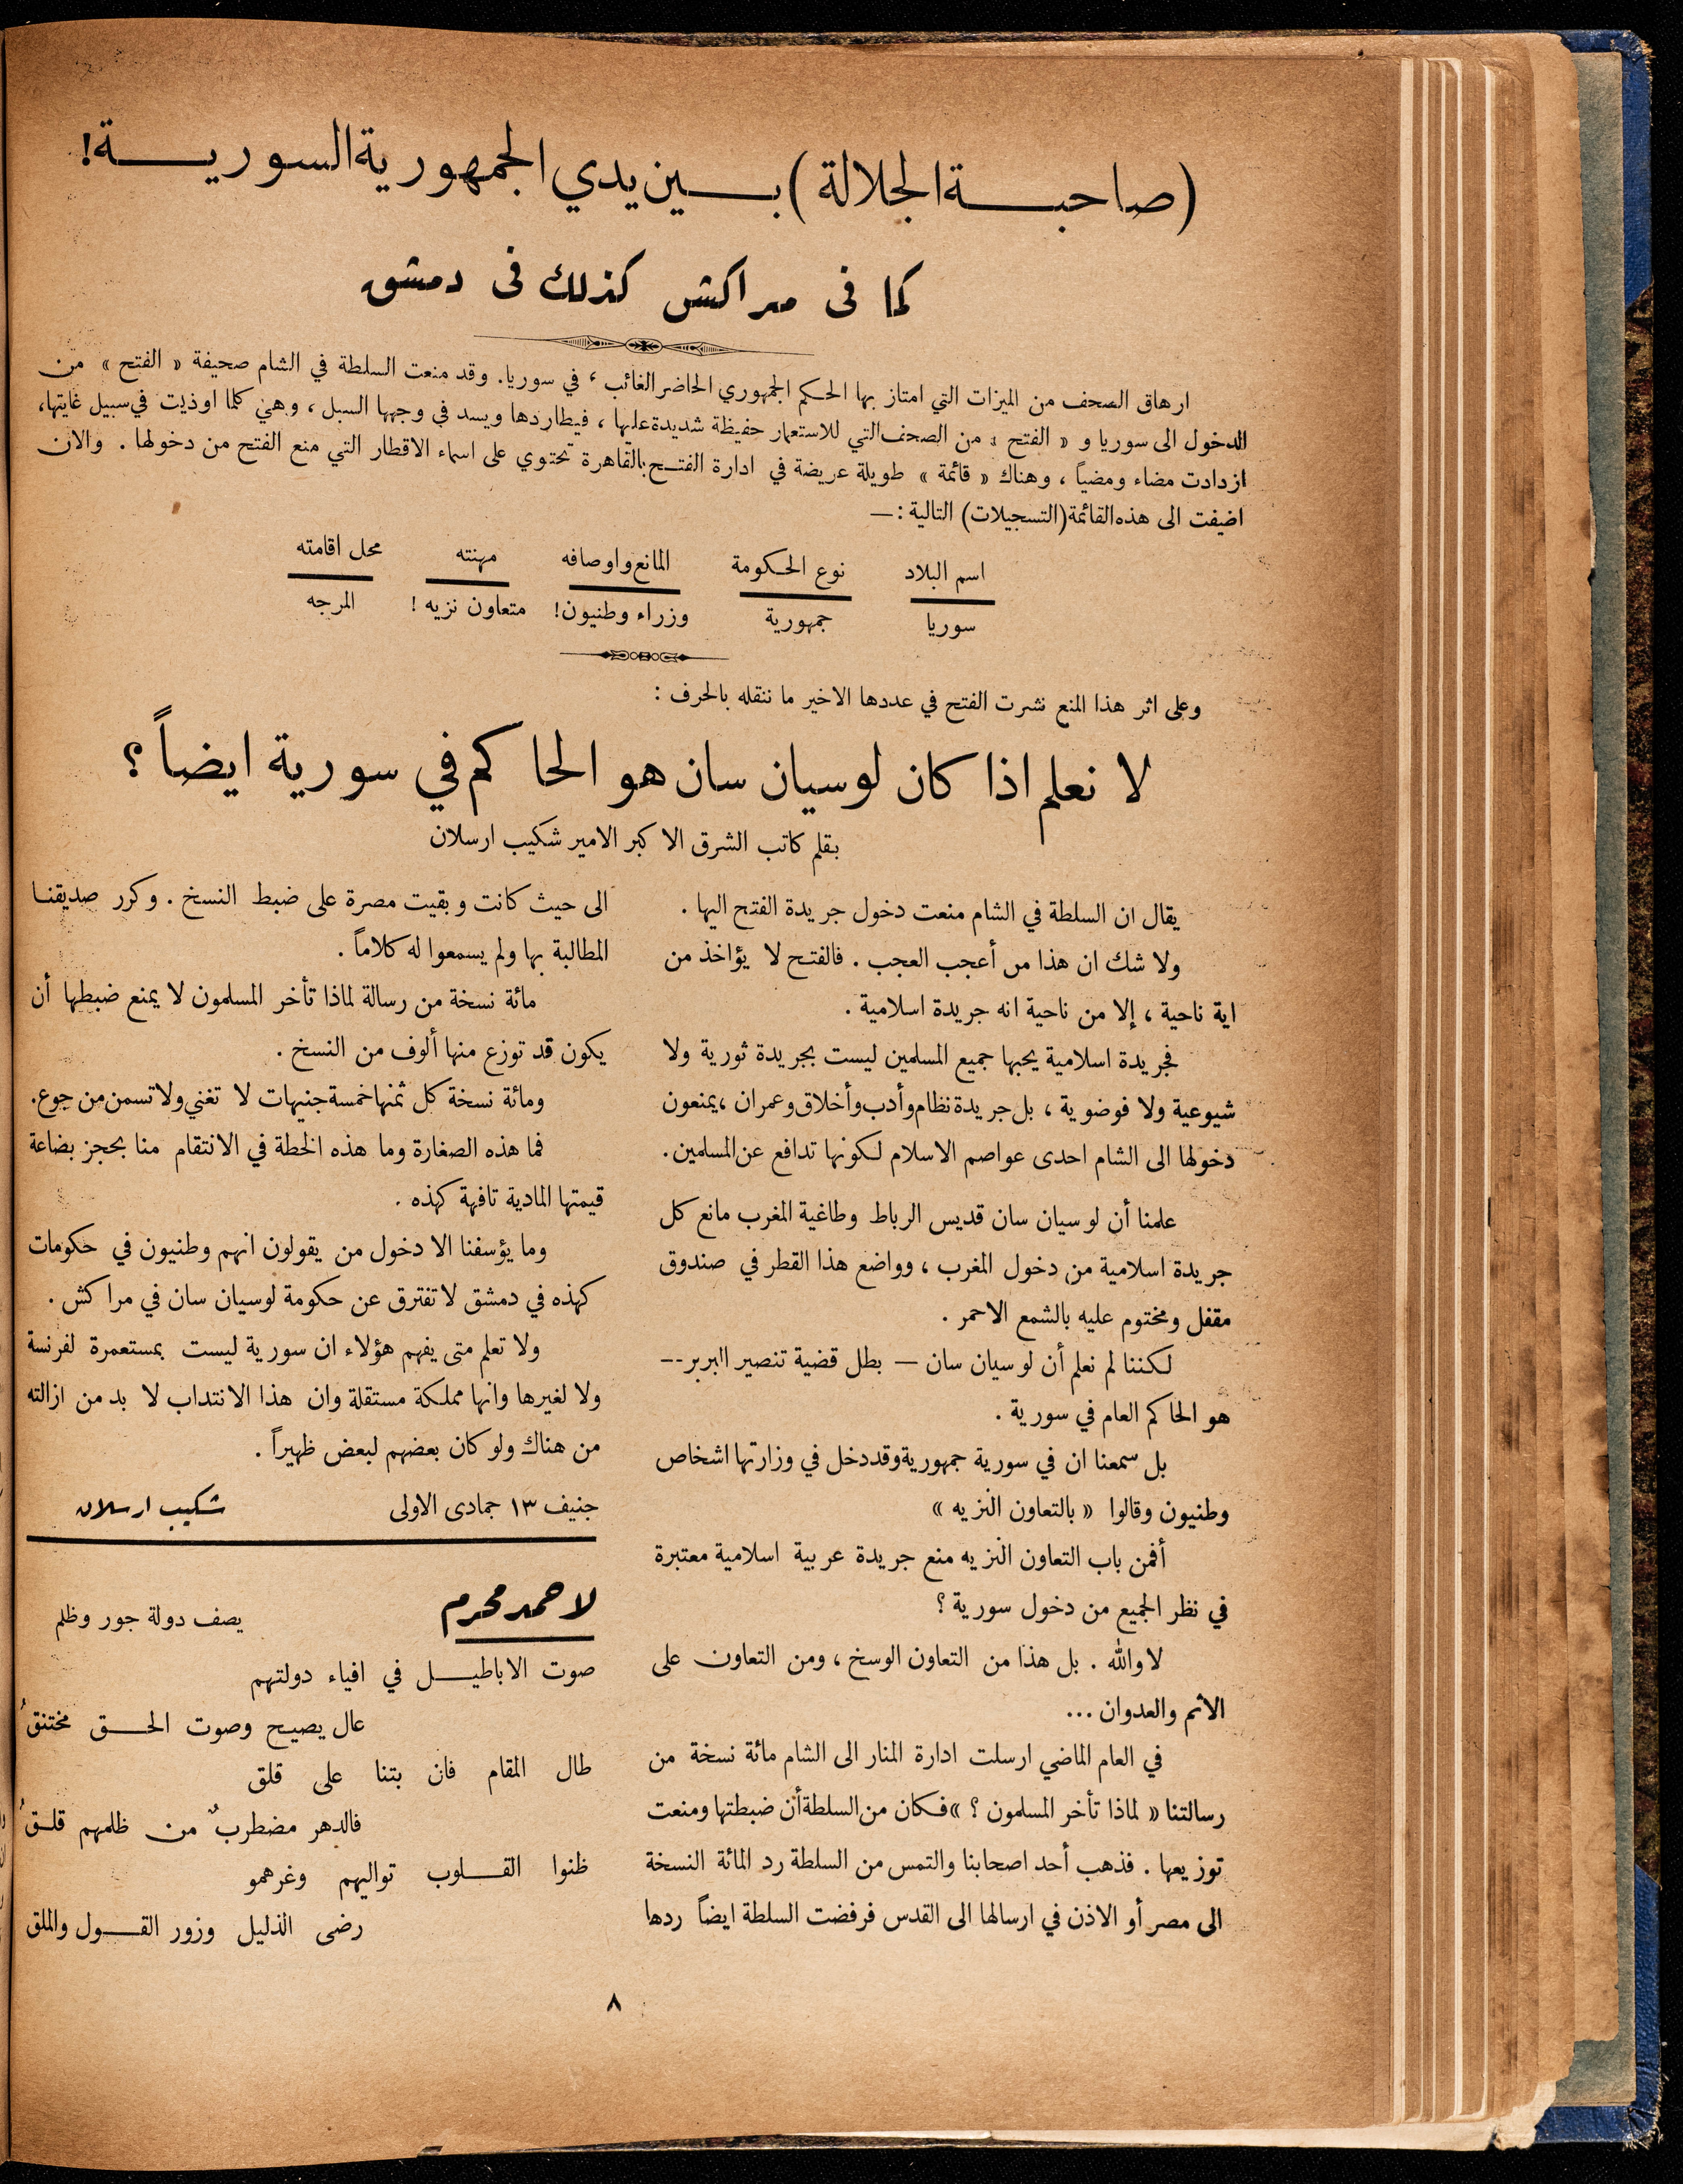 (صاحبة الجلالة) بين يدي الجمهورية السورية!
كما فى مراكش كذلك فى دمشق
ارهاق الصحف من الميزات التي امتاز بها الحكم الجمهوري الحاضر الغائب ، في سوريا. وقد منعت السلطة في الشام صحيفة « الفتح » من
الدخول الى سوريا و « الفتح » من الصحف التي للاستعمار حفيظة شديدة عليها ، فيطاردها ويسد في وجهها السبل ، وهي كلما اوذيت في سبيل غايتها،
ازدادت مضاء ومضياً ، وهناك « قائمة » طويلة عريضة في ادارة الفتح بالقاهرة تحتوي على اسماء الاقطار التي منع الفتح من دخولها . والان
اضيفت الى هذه القائمة (التسجيلات) التالية :—
اسم البلاد نوع الحكومة المانع واوصافه مهنته محل اقامته
سوريا جمهورية وزراء وطنيون! متعاون نزيه ! المرجه
وعلى اثر هذا المنع نشرت الفتح في عددها الاخير ما ننقله بالحرف :
لا نعلم اذا كان لوسيان سان هو الحاكم في سورية ايضاً ؟
بقلم كاتب الشرق الاكبر الامير شكيب ارسلان
يقال ان السلطة في الشام منعت دخول جريدة الفتح اليها .
ولا شك ان هذا من أعجب العجب . فالفتح لا يؤاخذ من
اية ناحية ، إلا من ناحية انه جريدة اسلامية .
فجريدة اسلامية يحبها جميع المسلمين ليست بجريدة ثورية ولا
شيوعية ولا فوضوية ، بل جريدة نظام وأدب وأخلاق وعمران ، يمنعون
دخولها الى الشام احدى عواصم الاسلام لكونها تدافع عن المسلمين.
علمنا أن لوسيان سان قديس الرباط وطاغية المغرب مانع كل
جريدة اسلامية من دخول المغرب ، وواضع هذا القطر في صندوق
مقفل ومختوم عليه بالشمع الاحمر .
لكننا لم نعلم أن لوسيان سان — بطل قضية تنصير البربر --
هو الحاكم العام في سورية .
بل سمعنا ان في سورية جمهورية وقد دخل في وزارتها اشخاص
وطنيون وقالوا « بالتعاون النزيه »
أفمن باب التعاون النزيه منع جريدة عربية اسلامية معتبرة
في نظر الجميع من دخول سورية ؟
لا والله . بل هذا من التعاون الوسخ ، ومن التعاون على
الاثم والعدوان ...
في العام الماضي ارسلت ادارة المنار الى الشام مائة نسخة من
رسالتنا « لماذا تأخر المسلمون ؟ » فكان من السلطة أن ضبطتها ومنعت
توزيعها . فذهب أحد اصحابنا والتمس من السلطة رد المائة النسخة
الى مصر أو الاذن في ارسالها الى القدس فرفضت السلطة ايضاً ردها
الى حيث كانت وبقيت مصرة على ضبط النسخ . وكرر صديقنا
المطالبة بها ولم يسمعوا له كلاماً .
مائة نسخة من رسالة لماذا تأخر المسلمون لا يمنع ضبطها أن
يكون قد توزع منها ألوف من النسخ .
ومائة نسخة كل ثمنها خمسة جنيهات لا تغني ولا تسمن من جوع.
فما هذه الصغارة وما هذه الخطة في الانتقام منا بحجز بضاعة
قيمتها المادية تافهة كهذه .
وما يؤسفنا الا دخول من يقولون انهم وطنيون في حكومات
كهذه في دمشق لا تفترق عن حكومة لوسيان سان في مراكش .
ولا تعلم متى يفهم هؤلاء ان سورية ليست بمستعمرة لفرنسة
ولا لغيرها وانها مملكة مستقلة وان هذا الانتداب لا بد من ازالته
من هناك ولو كان بعضهم لبعض ظهيراً .
جنيف ١٣ جمادى الاولى شكيب ارسلان
لاحمد محرم يصف دولة جور وظلم
صوت الاباطيل في افياء دولتهم
عال يصيح وصوت الحق مختنقُ
طال المقام فان بتنا على قلق
فالدهر مضطربٌ من ظلمهم قلقُ
ظنوا القلوب تواليهم وغرهمو
رضى الذليل وزور القول والملق
٨